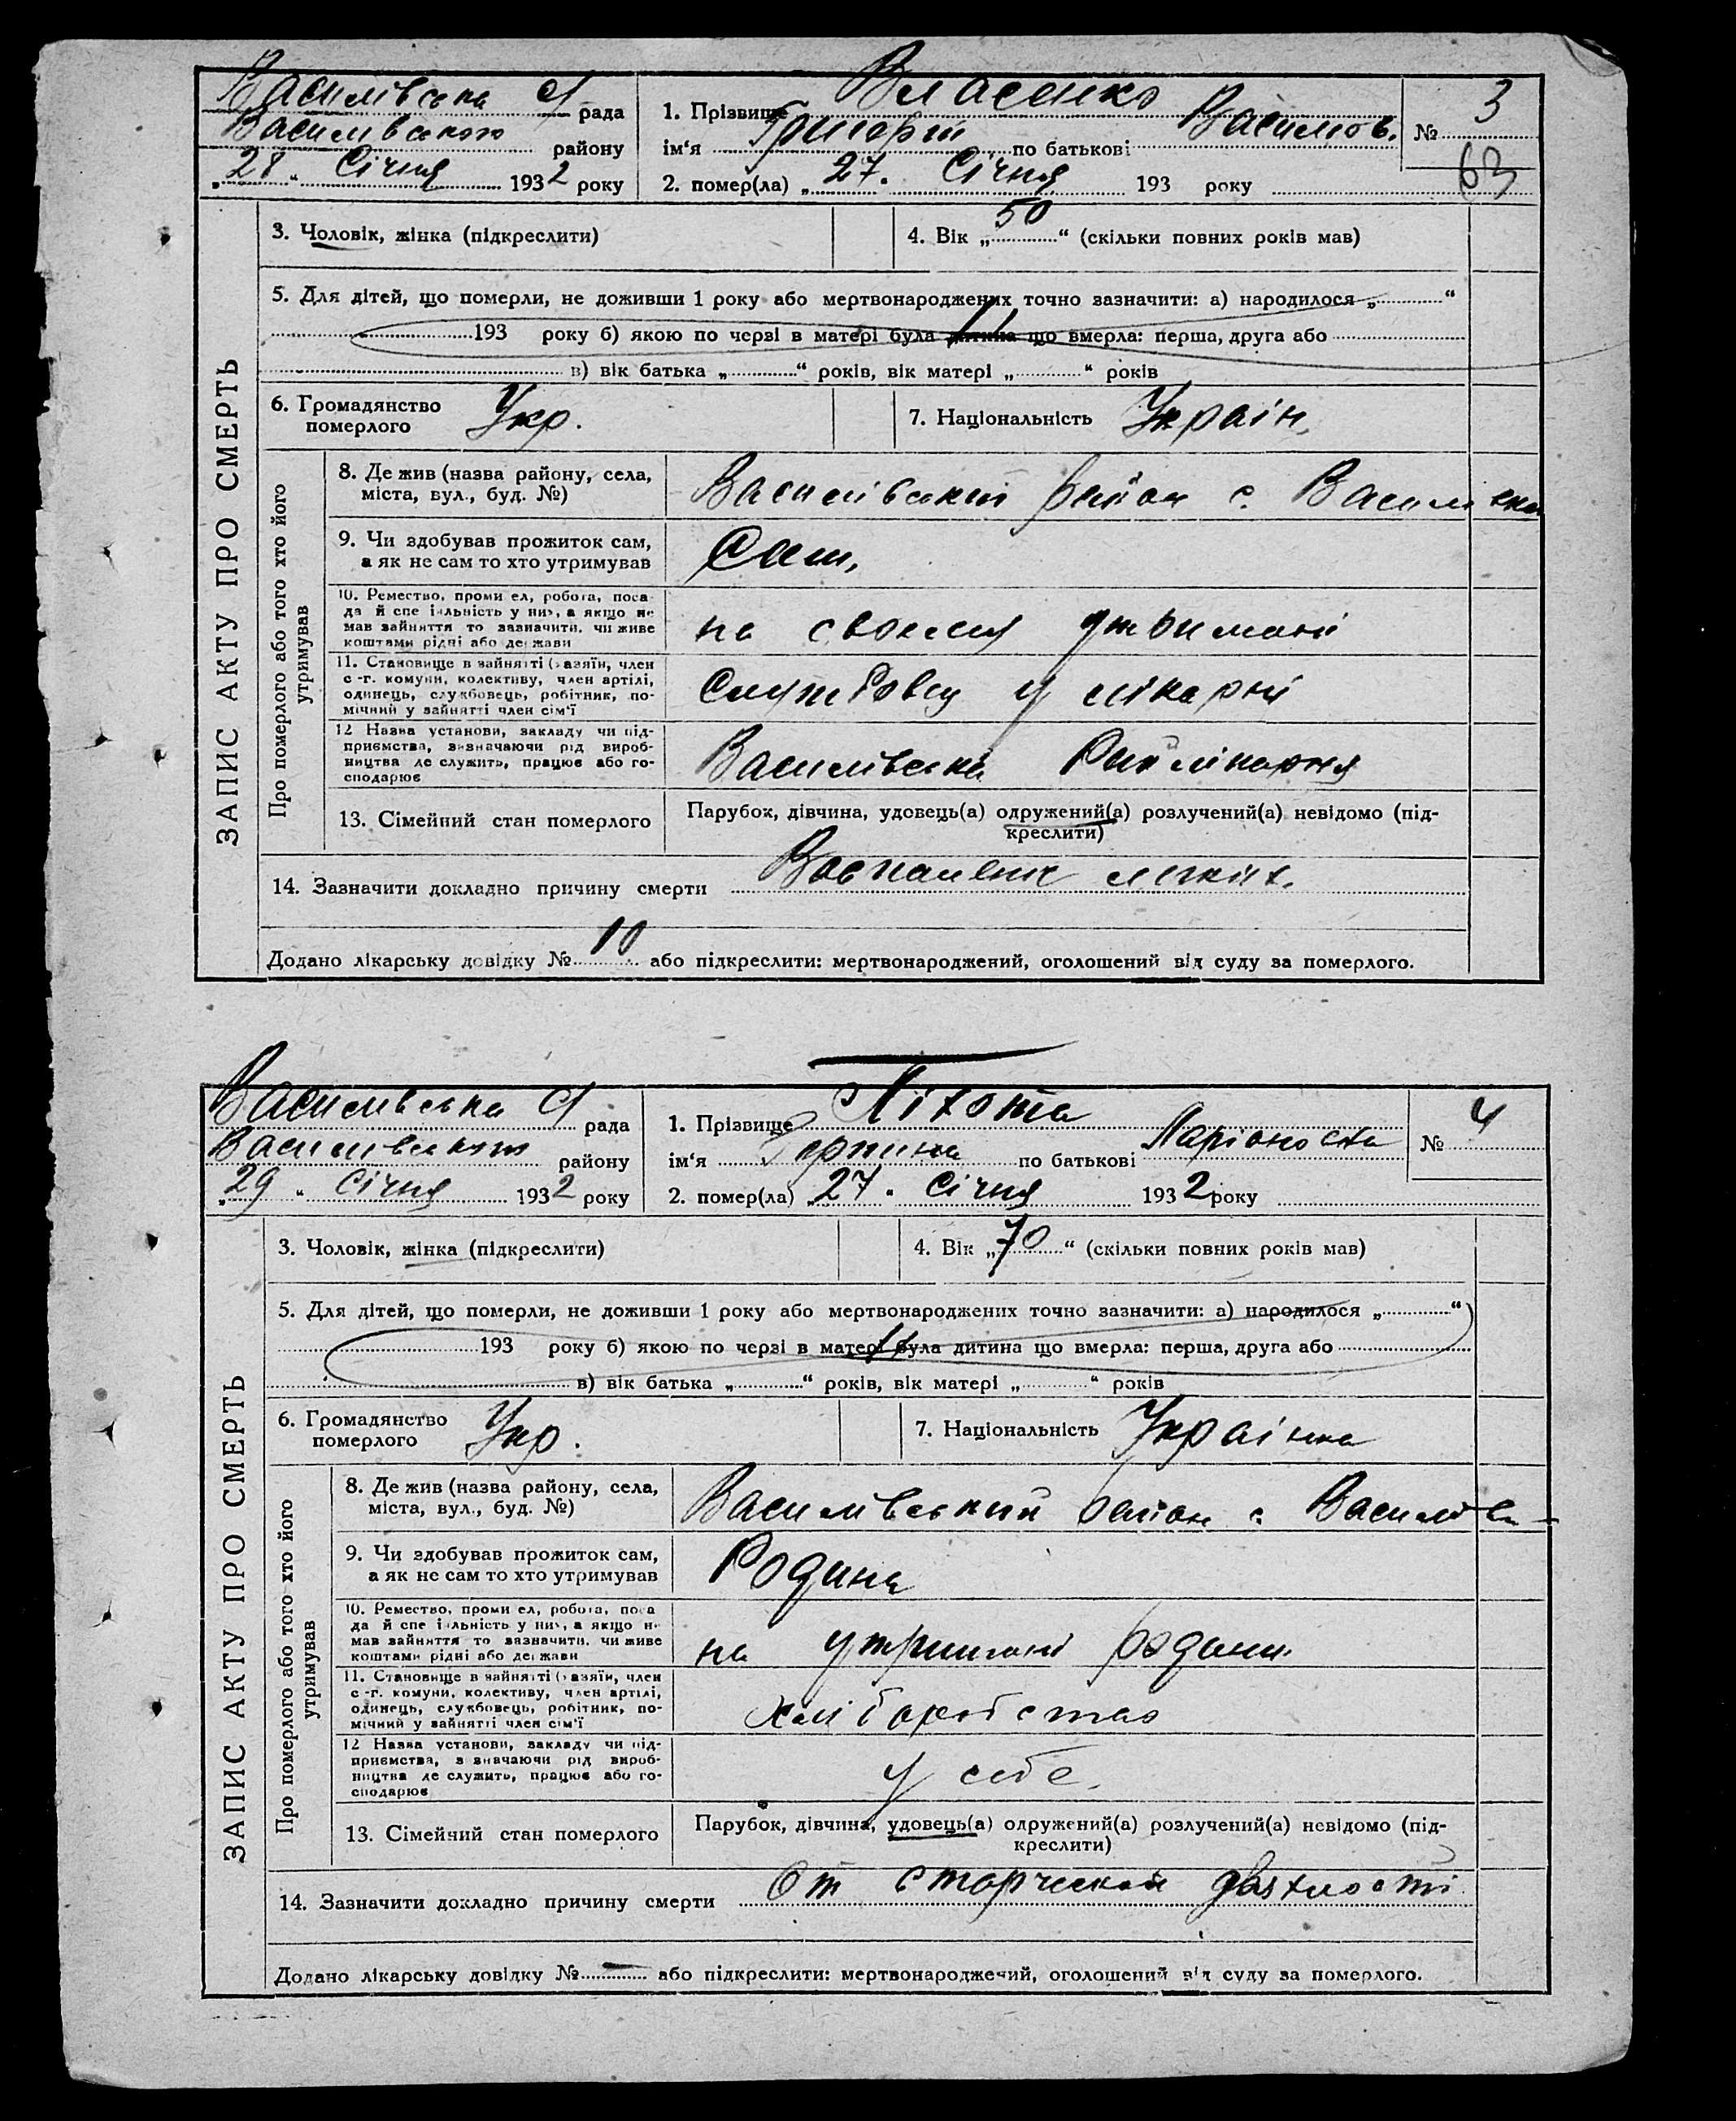 Василівська с/рада
Василівського району
„28“ Січня 1932 року
1. Прізвище Власенко
ім‘я Григорій по батькові Василов.
2. помер(ла) „27“ Січня 193 року
№ 3
63
ЗАПИС АКТУ ПРО СМЕРТЬ
3. Чоловік, жінка (підкреслити)
4. Вік „50“ (скільки повних років мав)
5. Для дітей, що померли, не доживши 1 року або мертвонароджених точно зазначити: а) народилося „“
193 року б) якою по черзі в матері була дитина що вмерла: перша, друга або
в) вік батька „“ років, вік матері „“ років
6. Громадянство
померлого Укр.
7. Національність Україн.
Про померлого або того хто його
утримував
8. Де жив (назва району, села,
міста, вул., буд. №)
Василівський район с. Василівка
9. Чи здобував прожиток сам,
а як не сам то хто утримував
Сам.
10. Ремество, проми ел, робота, поса-
да й спе іяльність у них, а якщо не
мав зайняття то зазначити, чи живе
коштами рідні або держави
на своєму утримані
11. Становище в зайнятті (хазяїн, член
с.-г. комуни, колективу, член артілі,
одинець, службовець, робітник, по-
мічний у зайнятті член сім‘ї
Службовец у лікарні
12 Назва установи, закладу чи під-
приємства, зазначаючи рід вироб-
ництва де служить, працює або го-
сподарює
Василівська Райлікарня
13. Сімейний стан померлого
Парубок, дівчина, удовець(а) одружений(а) розлучений(а) невідомо (під-
креслити)
14. Зазначити докладно причину смерти Воспаление легких.
Додано лікарську довідку № 10 або підкреслити: мертвонароджений, оголошений від суду за померлого.
Василівська с/рада
Василівського району
„29“ Січня 1932 року
1. Прізвище Піхота
ім‘я по батькові Ларіоновна
2. помер(ла) „27“ Січня 1932 року
№ 4
ЗАПИС АКТУ ПРО СМЕРТЬ
3. Чоловік, жінка (підкреслити)
4. Вік „70“ (скільки повних років мав)
5. Для дітей, що померли, не доживши 1 року або мертвонароджених точно зазначити: а) народилося „“
193 року б) якою по черзі в матері була дитина що вмерла: перша, друга або
в) вік батька „“ років, вік матері „“ років
6. Громадянство
померлого Укр.
7. Національність Українка
Про померлого або того хто його
утримував
8. Де жив (назва району, села,
міста, вул., буд. №)
Василівський район с. Василівка
9. Чи здобував прожиток сам,
а як не сам то хто утримував
Родина
10. Ремество, проми ел, робота, поса
да й спе іяльність у них, а якщо не
мав зайняття то зазначити, чи живе
коштами рідні або держави
на утримані родини.
11. Становище в зайнятті (хазяїн, член
с.-г. комуни, колективу, член артілі,
одинець, службовець, робітник, по-
мічний у зайнятті член сім‘ї
хліборобство
12 Назва установи, закладу чи під-
приємства, зазначаючи рід вироб-
ництва де служить, працює або го-
сподарює
у себе.
13. Сімейний стан померлого
Парубок, дівчина, удовець(а) одружений(а) розлучений(а) невідомо (під-
креслити)
14. Зазначити докладно причину смерти От старческой дряхлости
Додано лікарську довідку № — або підкреслити: мертвонароджений, оголошений від суду за померлого.